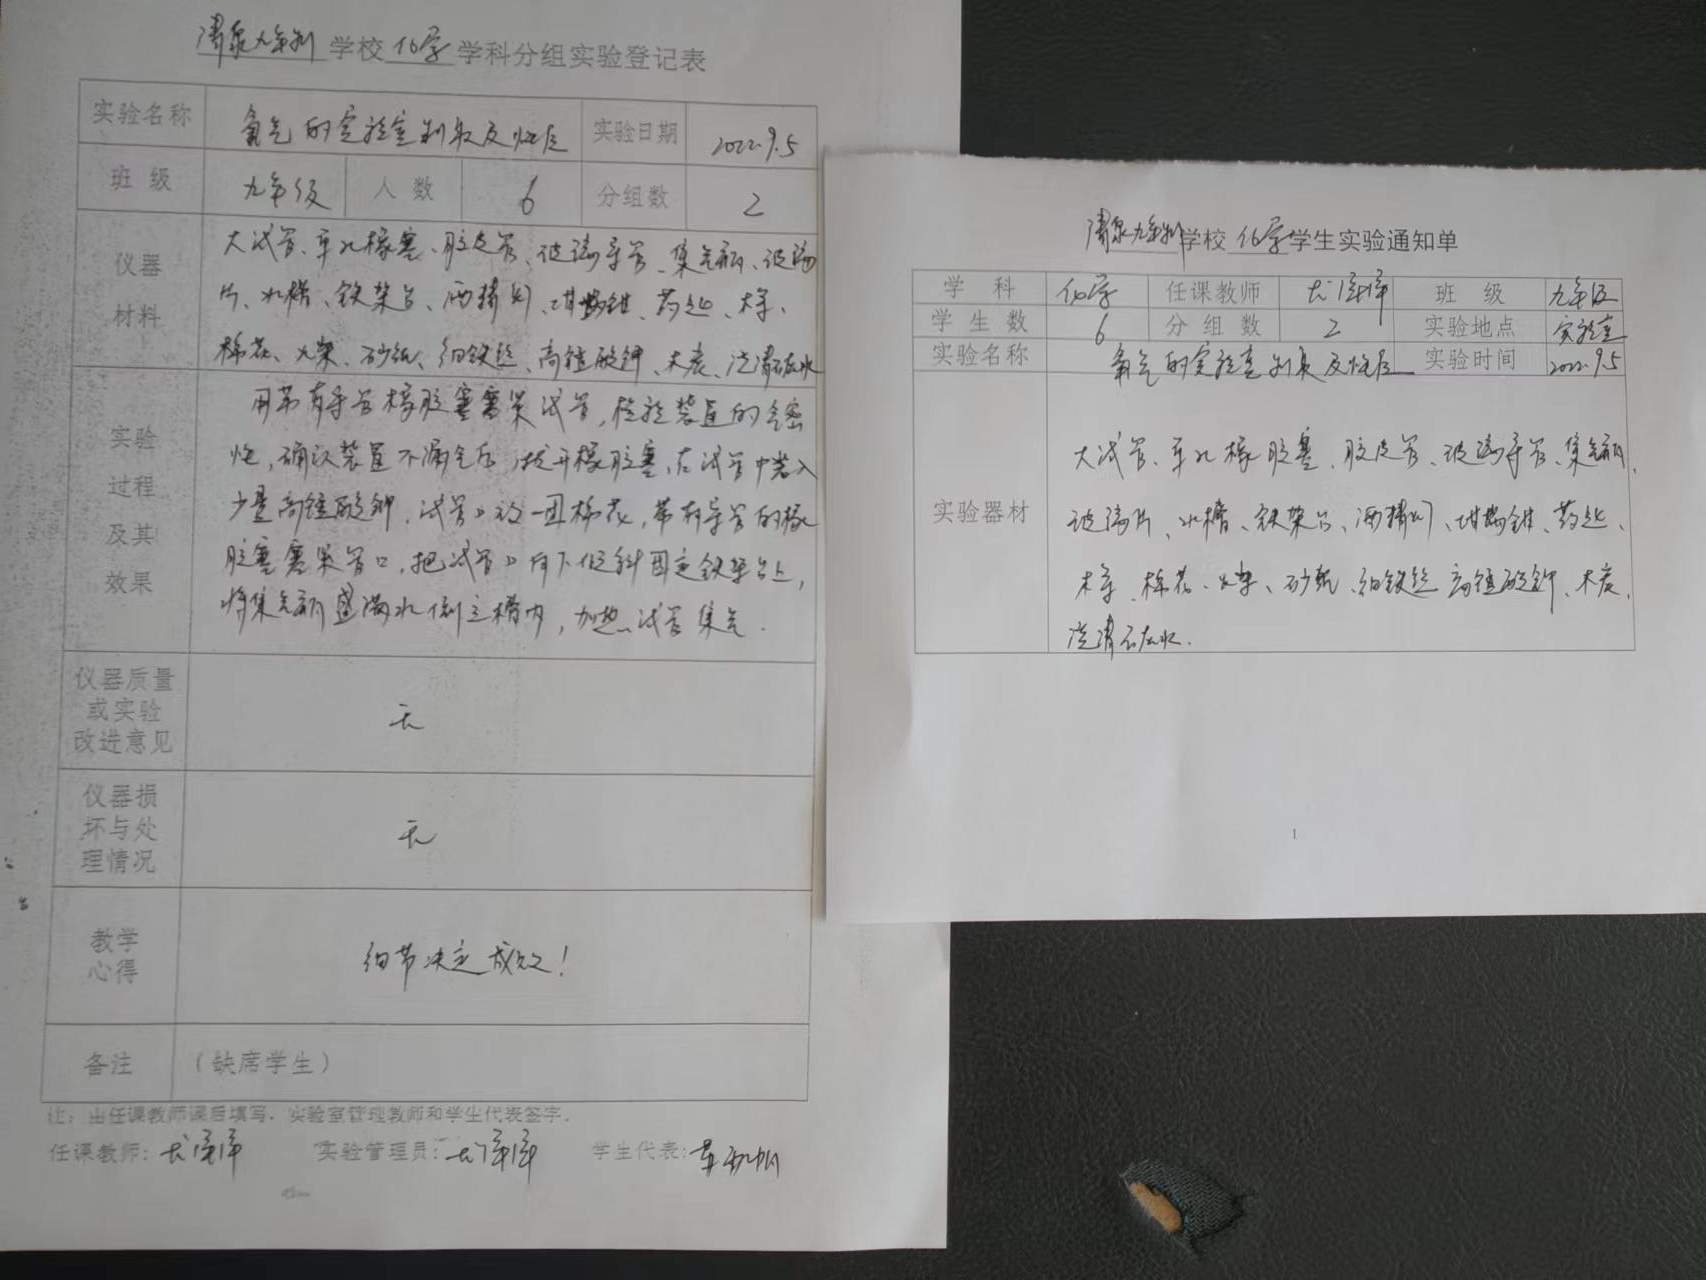 清泉九年制学校化学学科分组实验登记表
实验名称 氧气的实验室制取及性质 实验日期 2022.9.5
班级 九年级 人数 6 分组数 2
仪器材料
大试管、单孔橡塞、胶皮管、玻璃导管、集气瓶、玻璃
片、水槽、铁架台、酒精灯、坩埚钳、药匙、木条、
棉花、火柴、砂纸、细铁丝、高锰酸钾、木炭、澄清石灰水
实验过程及其效果
用带有导管橡胶塞塞紧试管，检验装置的气密
性，确认装置不漏气后，拔开橡胶塞，在试管中装入
少量高锰酸钾，试管口放一团棉花，带有导管的橡
胶塞塞紧管口，把试管口向下倾斜固定铁架台上，
将集气瓶盛满水倒立槽内，加热试管集气.
仪器质量或实验改进意见 无
仪器损坏与处理情况 无
教学心得 细节决定成败！
备注 （缺席学生）
注：由任课教师课后填写，实验室管理教师和学生代表签字。
任课教师： 实验管理员： 学生代表：
清泉九年制学校化学学生实验通知单
学科 化学 任课教师 班级 九年级
学生数 6 分组数 2 实验地点 实验室
实验名称 氧气的实验室制取及性质 实验时间 2022.9.5
实验器材
大试管、单孔橡胶塞、胶皮管、玻璃导管、集气瓶、
玻璃片、水槽、铁架台、酒精灯、坩埚钳、药匙、
木条、棉花、火柴、砂纸、细铁丝 高锰酸钾、木炭、
澄清石灰水.
1